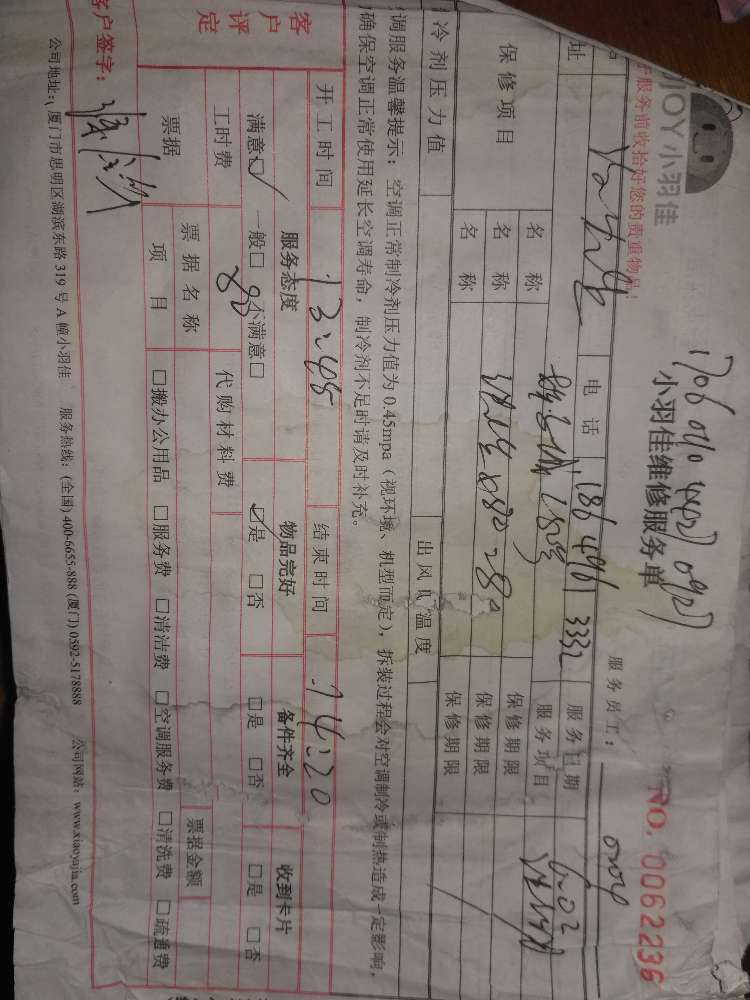 JOY小羽佳
服务前收拾好您的贵重物品!
小羽佳维修服务单
NO. 0062236
服务员工:
址
电话
186 4961 3332
服务日期
6.02
保修项目
名称
服务项目
名称
保修期限
名称
保修期限
保修期限
冷剂压力值
出风口温度
调服务温馨提示:空调正常制冷剂压力值为0.45mpa(视环境、机型而定),拆装过程会对空调制冷或制热造成一定影响,
确保空调正常使用延长空调寿命,制冷剂不足时请及时补充。
开工时间
13:48
结束时间
14:20
客户评定
服务态度
物品完好
备件齐全
收到卡片
满意☑ 一般□ 不满意□
☑是 □否
□是 □否
□是 □否
工时费
80
代购材料费
票据
票据名称
票据金额
项目
□搬办公用品 □服务费 □清洁费 □空调服务费 □清洗费 □疏通费
客户签字:
公司地址:厦门市思明区湖滨东路319号A幢小羽佳 服务热线:(全国)400-6655-888 (厦门)0592-5178888 公司网站:www.xiaoyujia.com